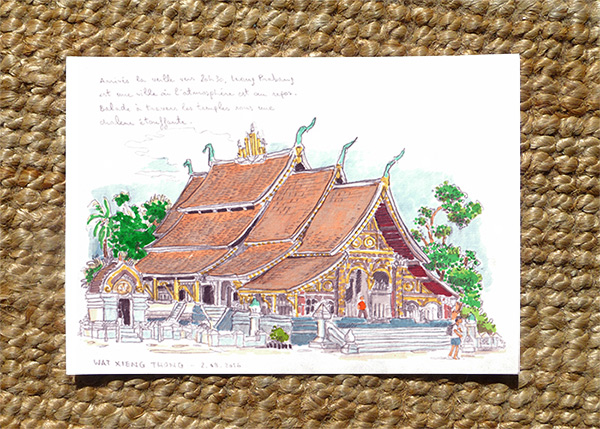 Arrivée la veille vers 20h30, Luang Prabang
est une ville où l'atmosphère est au repos.
Balade à travers les temples sous une
chaleur étouffante.
WAT XIENG THONG -